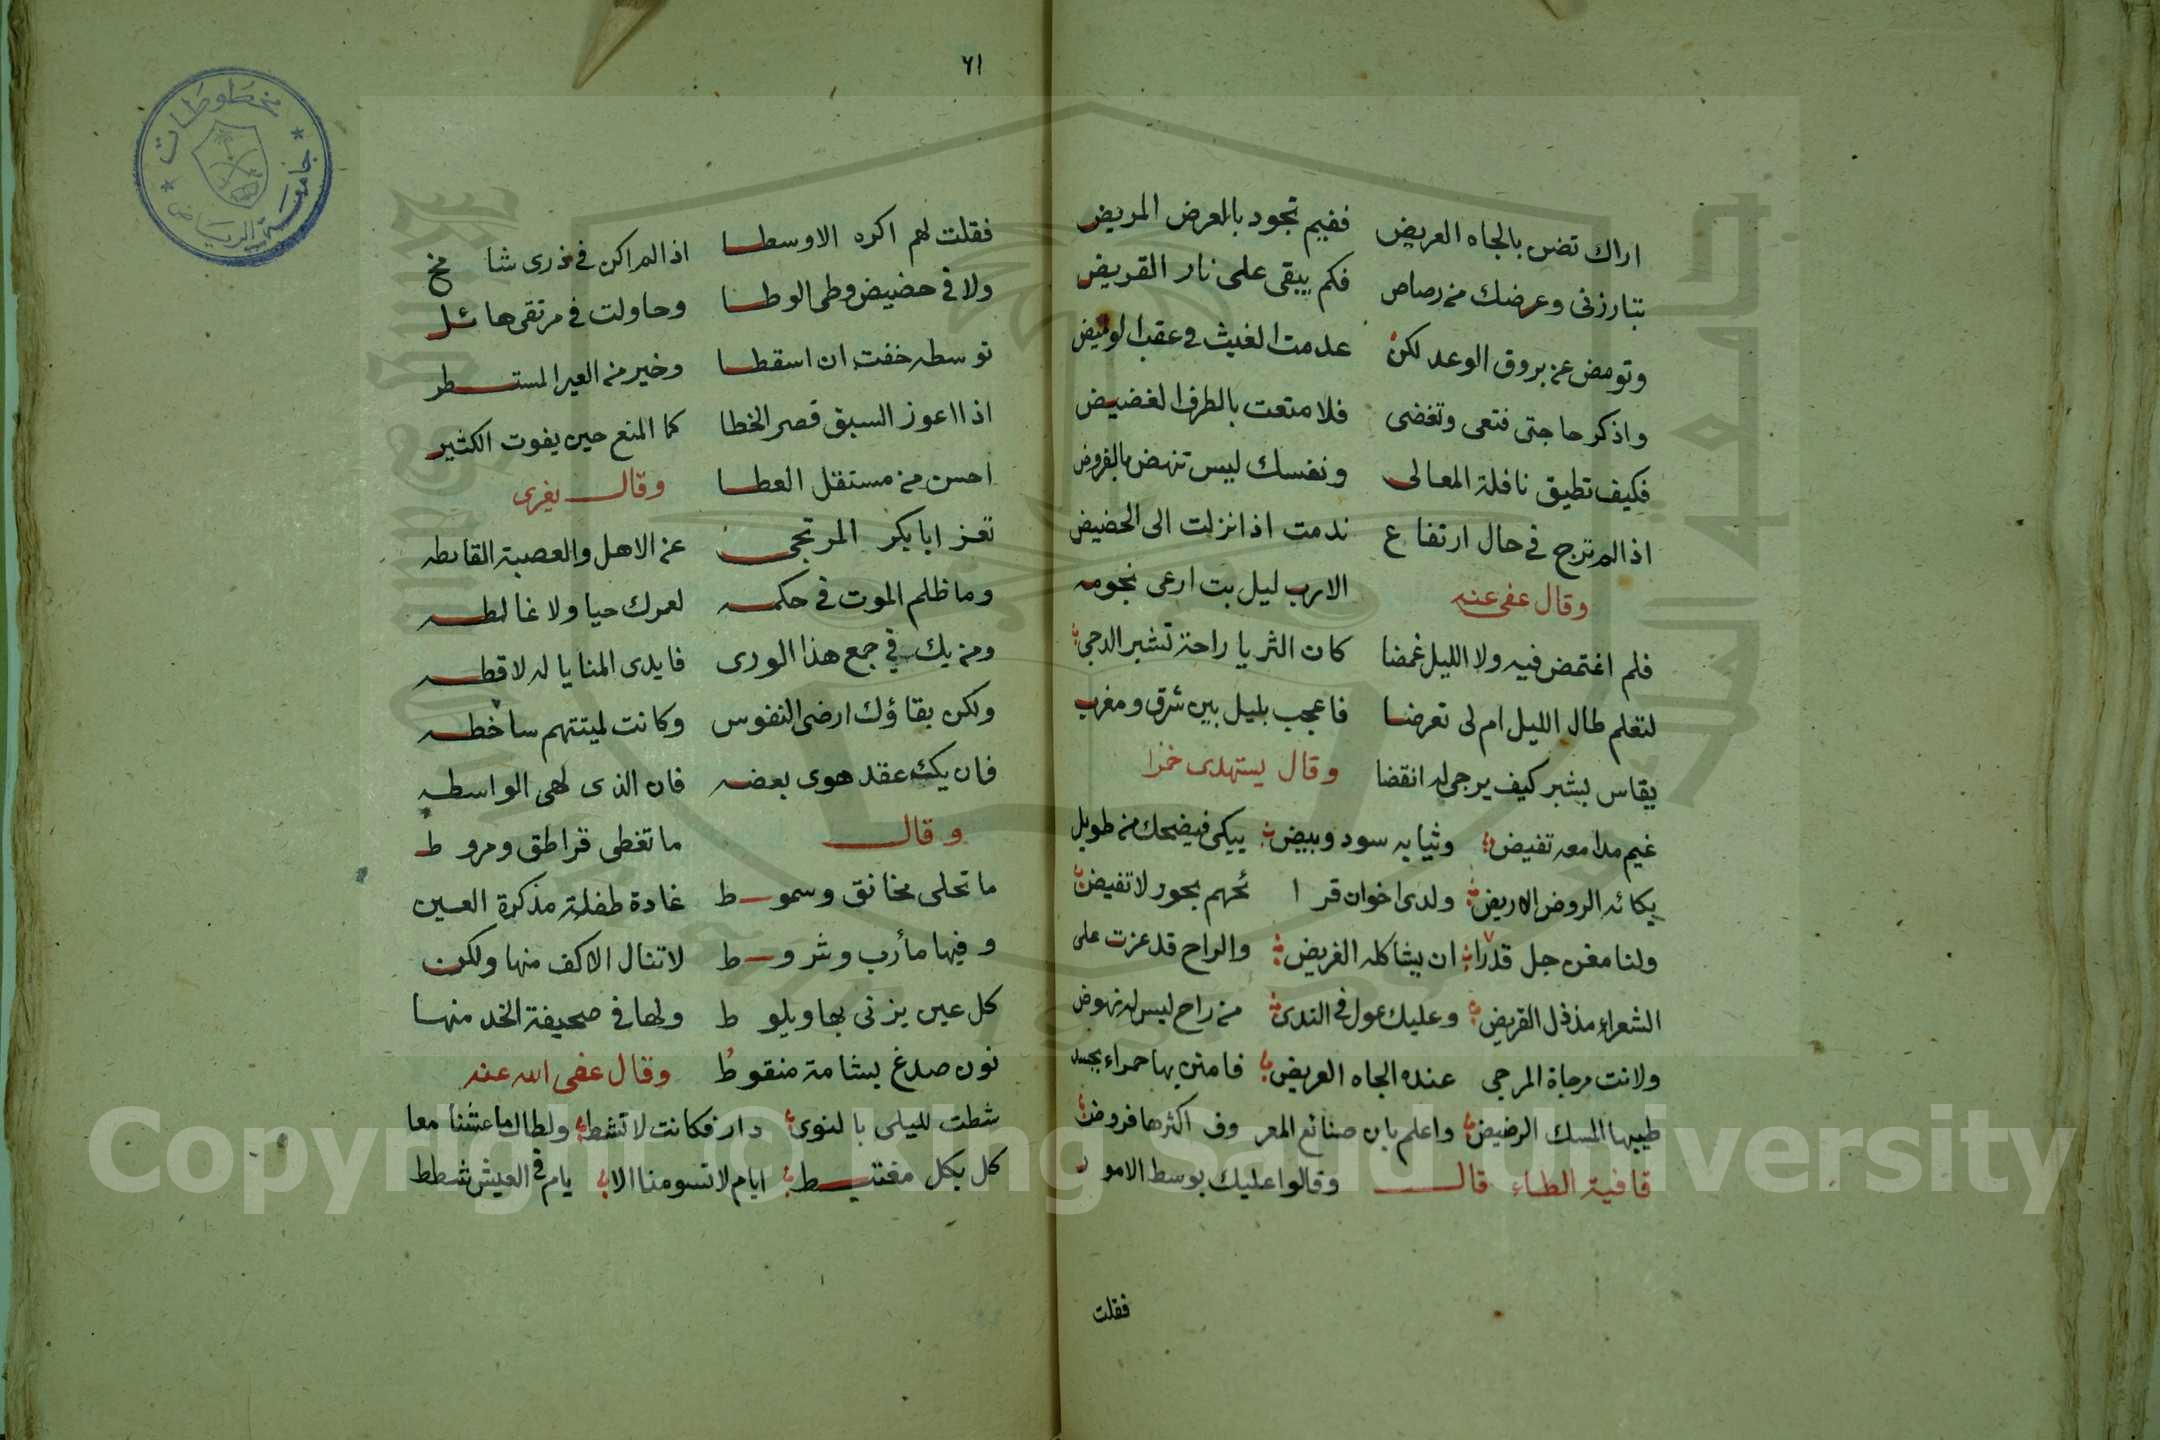 اراك تضن بالجاه العريض ففيم تجود بالعرض المريض
تبارزنى وعرضك من رصاص فكم يبقى على نار القريض
وتومض عن بروق الوعد لكن عدمت الغيث فى عقب الوميض
واذكر حاجتى فتعى وتغضى فلا متعت بالطرف الغضيض
فكيف تطيق نافلة المعالى ونفسك ليس تنهض بالفروض
اذا لم ترج فى حال ارتفاع ندمت اذا نزلت الى الحضيض
وقال عفى عنه الارب ليل بت ارعى نجومه
فلم اغتمض فيه ولا الليل غمضا كان الثريا راحة تشبر الدجى
لتعلم طال الليل ام لى تعرضا فاعجب بليل بين شرق ومغرب
يقاس بشبر كيف يرجى له انقضا وقال يستهدى خمرا
غيم مدامعه تفيض وثيابه سود وبيض يبكى فيضحك من طويل
بكائه الروض الاريض ولدى اخوان قرا ئحهم بحور لا تفيض
ولنا مغن جل قدرا ان يشاكله الغريض والراح قد عزت على
الشعراء مذ ذل القريض وعليك عول فى الندى من راح ليس له نهوض
ولانت مرجاة المرجى عنده الجاه العريض فامنن بها حمراء يحسد
طيبها المسك الرضيض واعلم بان صنائع المعر وف اكثرها فروض
قافية الطاء قال وقالوا عليك بوسط الامور
فقلت
٦١
فقلت لهم اكره الاوسطا اذا لم اكن فى ذرى شامخ
ولا فى حضيض وطى الوطا وحاولت فى مرتقى هائل
توسطه خفت ان اسقطا وخير من العير المستطر
اذا اعوز السبق قصر الخطا كما المنع حين يفوت الكثير
احسن من مستقل العطا وقال يغرى
تعز ابا بكر المرتجى عن الاهل والعصبة القاسطه
وما ظلم الموت فى حكمه لعمرك حيا ولا غالطه
ومن يك فى جمع هذا الورى فايدى المنايا له لاقطه
ولكن بقاؤك ارضى النفوس وكانت لميتتهم ساخطه
فان يك عقد هوى بعضه فان الذى لهى الواسطه
وقال ما تغطى قراطق ومروط
ما تحلى مخانق وسموط غادة طفلة مذكرة العين
وفيها مأرب وشروط لا تنال الاكف منها ولكن
كل عين يزنى بها ويلوط ولها فى صحيفة الخد منها
نون صدغ بشامة منقوط وقال عفى الله عنه
شطت لليلى بالنوى دار فكانت لا تشط ولطالما عشنا معا
كل بكل مغتبط ايام لا تسومنا الا يام فى العيش شطط
مخطوطات
جامعة الرياض
Copyright © King Saud University